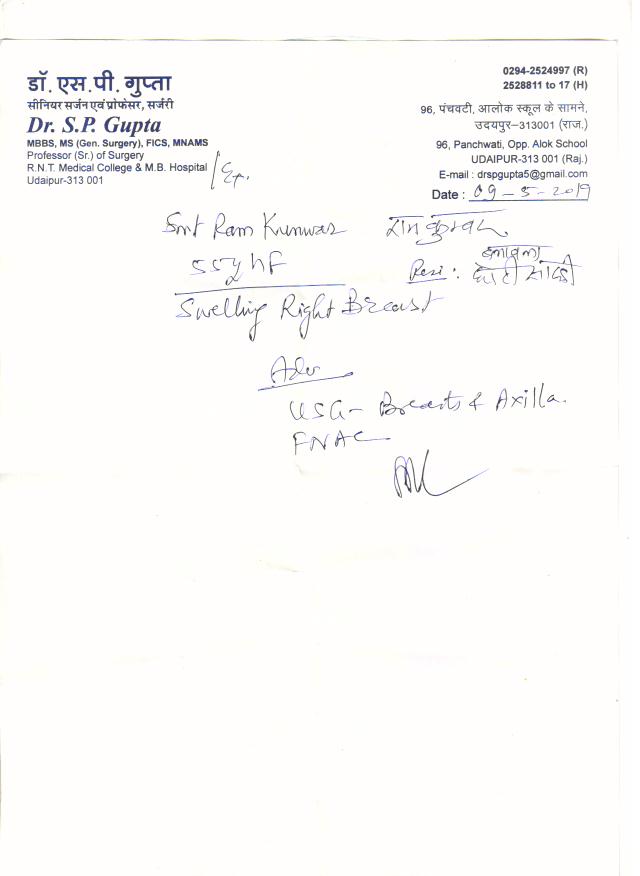 डॉ. एस.पी. गुप्ता
सीनियर सर्जन एवं प्रोफेसर, सर्जरी
Dr. S.P. Gupta
MBBS, MS (Gen. Surgery), FICS, MNAMS
Professor (Sr.) of Surgery
R.N.T. Medical College & M.B. Hospital
Udaipur-313 001
Ex.
0294-2524997 (R)
2528811 to 17 (H)
96, पंचवटी, आलोक स्कूल के सामने,
उदयपुर–313001 (राज.)
96, Panchwati, Opp. Alok School
UDAIPUR-313 001 (Raj.)
E-mail : drspgupta5@gmail.com
Date : 09-5-2019
Smt Ram Kunwar रामकुंवर
55y HF
Resi :
Swelling Right Breast
Adv
USG- Breasts & Axilla.
FNAC